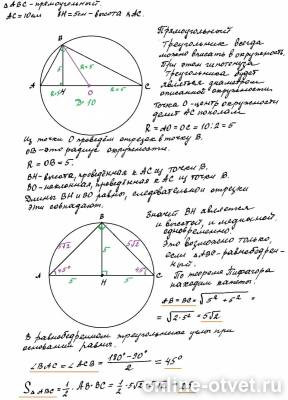 △ABC-прямоугольный.
AC=10см BH=5см-высота к AC.
Прямоугольный
треугольник всегда
можно вписать в окружность.
При этом гипотенуза
треугольника будет
являться диаметром
описанной окружности.
Точка O-центр окружности
делит AC пополам
R=AO=OC=10:2=5
B
5
R=5
R=5
R=5
A
H
O
C
D=10
Из точки O проведём отрезок в точку B.
OB-это радиус окружности.
R=OB=5.
BH-высота, проведённая к AC из точки B.
BO-наклонная, проведённая к AC из точки B.
Длины BH и BO равны, следовательно отрезки
эти совпадают.
Значит BH является
и высотой, и медианой
одновременно.
Это возможно только,
если △ABC-равнобедрен-
ный.
По теореме Пифагора
находим катеты:
AB=BC=√5²+5² =
=√2·5² = 5√2
B
5√2
5√2
5
45°
45°
A
5
H
5
C
В равнобедренном треугольнике углы при
основании равны.
∠BAC=∠ACB= 180°-90° / 2 = 45°
S△ABC= 1/2 · AB·BC= 1/2 · 5√2 · 5√2 = 25
online-otvet.ru